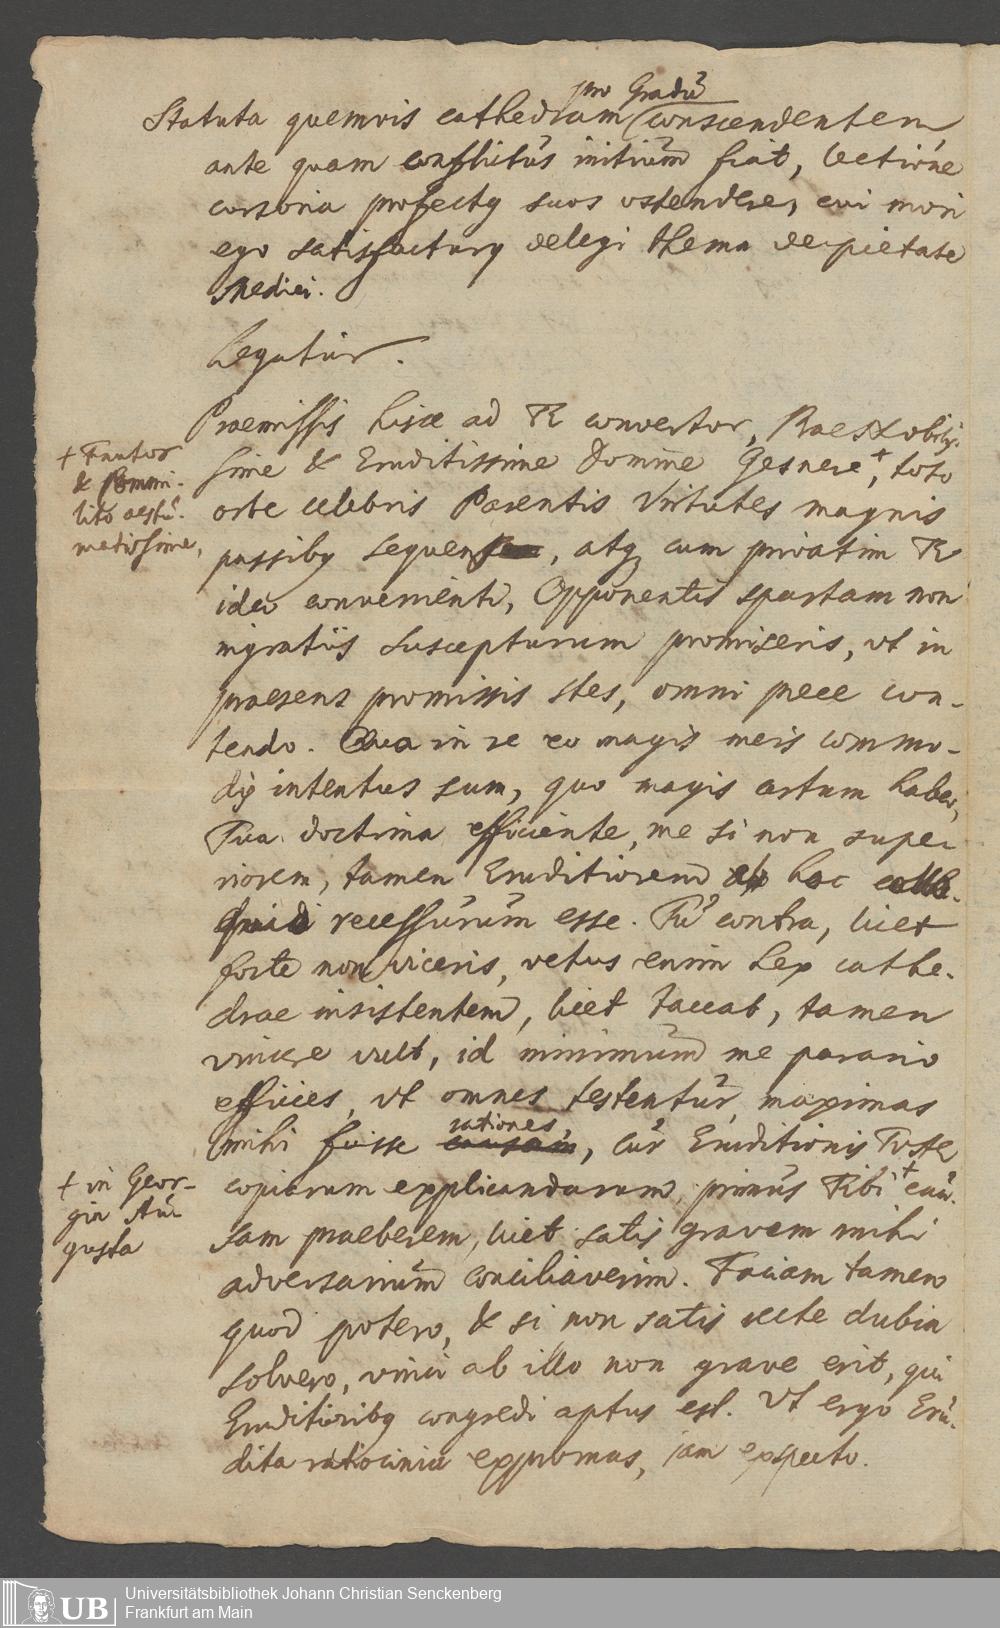 pro Gradu
Statuta quemvis cathedram conscendentem
ante quam conflictus initium fiat, lectione
cursoria profectq suos ostendere, cui mori
ego satisfacturq delegi thema de pietate
Medici.
Legatur.
Praemissis hisce ad Te convertor, Praenobilis-
sime & Eruditissime Domine Gesnere +, toto
+ Fautor
& Commi-
lito aestu-
matissime,
orbe celebris Parentis Virtutes magnis
passibq sequens, atq cum privatim Te
ideo convenienti, Opponentis spartam non
ingratiis suscepturum promiseris, vt in
praesens promissis stes, omni prece con-
tendo. Qua in re eo magis meis commo-
dis intentus sum, quo magis certum habeo,
Tua doctrina efficiente, me si non supe-
riorem, tamen Eruditiorem ab hoc collo-
quio recessurum esse. Tu contra, licet
forte non viceris, vetus enim Lex cathe-
drae insistentem, licet taceat, tamen
vincere vult, id minimum me parario
efficies, vt omnes testentur, maximas
rationes,
mihi fuisse causam, cur Eruditionis Tuae
copiarum explicandarum primus Tibi + cau-
+ in Geor-
gia Au-
gusta
sam praeberem, licet satis gravem mihi
adversarium conciliaverim. Faciam tamen
quod potero, & si non satis recte dubia
solvero, vinci ab illo non grave erit, qui
Eruditioribq congredi aptus est. Vt ergo Eru-
dita ratiocinia expromas, jam expecto.
UB
Universitätsbibliothek Johann Christian Senckenberg
Frankfurt am Main